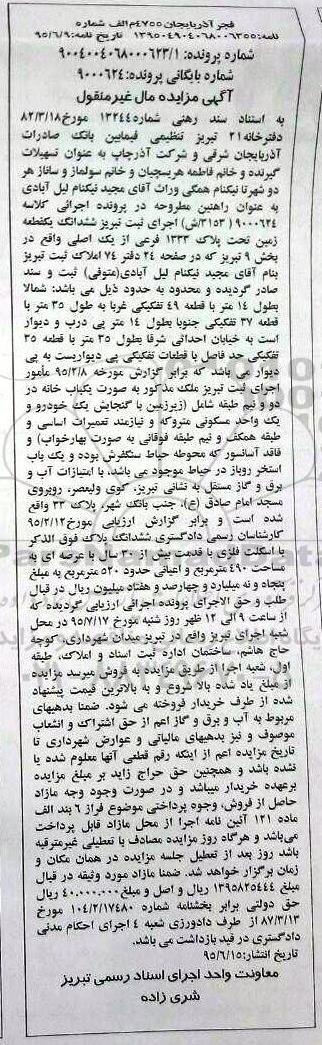 فجر آذربایجان ۴۷۵۵م الف شماره
نامه:۱۳۹۵۰۴۹۰۴۰۶۸۰۰۰۶۳۵۵ تاریخ نامه:۹۵/۶/۹
شماره پرونده: ۹۰۰۴۰۰۴۰۶۸۰۰۰۶۲۳/۱
شماره بایگانی پرونده: ۹۰۰۰۶۲۴
آگهی مزایده مال غیرمنقول
به استناد سند رهنی شماره ۱۳۲۴۴ مورخ ۸۲/۳/۱۸
دفترخانه ۲۱ تبریز تنظیمی فیمابین بانک صادرات
آذربایجان شرقی و شرکت آذرچاپ به عنوان تسهیلات
گیرنده و خانم فاطمه هریسچیان و خانم سولماز و ساناز هر
دو شهرتا نیکنام همگی وراث آقای مجید نیکنام لیل آبادی
به عنوان راهنین مطروحه در پرونده اجرائی کلاسه
۹۰۰۰۶۲۴ (۳۱۵۳/ش) اجرای ثبت تبریز ششدانگ یکقطعه
زمین تحت پلاک ۱۳۳۳ فرعی از یک اصلی واقع در
بخش ۹ تبریز که در صفحه ۲۴ دفتر ۷۴ املاک ثبت تبریز
بنام آقای مجید نیکنام لیل آبادی(متوفی) ثبت و سند
صادر گردیده و محدود به حدود ذیل می باشد: شمالا
بطول ۱۴ متر با قطعه ۴۹ تفکیکی غربا به طول ۳۵ متر با
قطعه ۳۷ تفکیکی جنوبا بطول ۱۴ متر پی درب و دیوار
است به خیابان احداثی شرقا بطول ۳۵ متر با قطعه ۳۵
تفکیکی حد فاصل با قطعات تفکیکی پی دیواریست به پی
دیوار می باشد که برابر گزارش مورخه ۹۵/۲/۸ مأمور
اجرای ثبت تبریز ملک مذکور به صورت یکباب خانه در
دو و نیم طبقه شامل (زیرزمین با گنجایش یک خودرو و
یک واحد مسکونی متروک و نیازمند تعمیرات اساسی و
طبقه همکف و نیم طبقه فوقانی به صورت بهارخواب) و
فاقد آسانسور که محوطه حیاط سنگفرش بوده و یک باب
استخر روباز در حیاط موجود می باشد، با امتیازات آب و
برق و گاز مستقل به نشانی تبریز، کوی ولیعصر، روبروی
مسجد امام صادق (ع)، جنب بانک شهر، پلاک ۳۳ واقع
شده است و برابر گزارش ارزیابی مورخ ۹۵/۲/۱۲
کارشناسان رسمی دادگستری ششدانگ پلاک فوق الذکر
با اسکلت فلزی با قدمت بیش از ۳۰ سال با عرصه ای به
مساحت ۴۹۰ مترمربع و اعیانی حدود ۵۲۰ مترمربع به مبلغ
پنجاه و نه میلیارد و چهارصد و هفتاد میلیون ریال در قبال
طلب و حق الاجرای پرونده اجرائی ارزیابی گردیده که
از ساعت ۹ الی ۱۲ ظهر روز شنبه مورخ ۹۵/۷/۱۷ در محل
شعبه اجرای تبریز واقع در تبریز میدان شهرداری، کوچه
حاج هاشم، ساختمان اداره ثبت اسناد و املاک، طبقه
اول، شعبه اجرا از طریق مزایده به فروش میرسد مزایده
از مبلغ یاد شده بالا شروع و به بالاترین قیمت پیشنهاد
شده از طرف خریدار فروخته می شود. ضمنا بدهیهای
مربوط به آب و برق و گاز اعم از حق اشتراک و انشعاب
موصوف و نیز بدهیهای مالیاتی و عوارض شهرداری تا
تاریخ مزایده اعم از اینکه رقم قطعی آنها معلوم شده یا
نشده باشد و همچنین حق حراج زاید بر مبلغ مزایده
برعهده خریدار میباشد و در صورت وجود وجه مازاد
حاصل از فروش، وجوه پرداختی موضوع فراز ۶ بند الف
ماده ۱۲۱ آئین نامه اجرا از محل مازاد قابل پرداخت
می‌باشد و هرگاه روز مزایده مصادف با تعطیلی غیرمترقبه
باشد روز بعد از تعطیل جلسه مزایده در همان مکان و
زمان برگزار خواهد شد. ضمنا مازاد مورد وثیقه در قبال
مبلغ ۱۳۹۵۸۲۵۴۴۴ ریال و اصل و مبلغ ۴۰.۰۰۰.۰۰۰ ریال
حق دولتی برابر بخشنامه شماره ۱۰۴/۲/۱۷۴۸۰ مورخ
۸۷/۳/۱۳ از طرف دادورزی شعبه ۴ اجرای احکام مدنی
دادگستری در قید بازداشت می باشد.
تاریخ انتشار: ۹۵/۶/۱۵
معاونت واحد اجرای اسناد رسمی تبریز
شری زاده